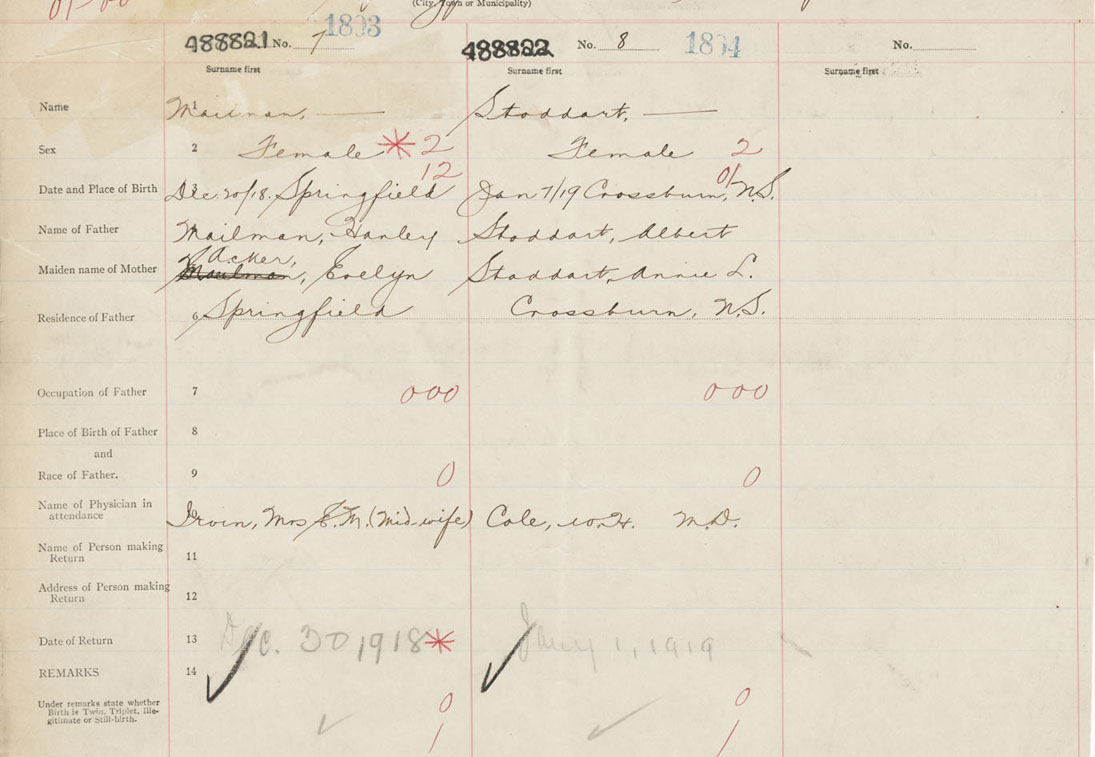 (City, Town or Municipality)
488821 No. 7 1803
488822 No. 8 1804
No.
Surname first Surname first Surname first
Name 1 Mailman, — Stoddart, —
Sex 2 Female * 2 Female 2
12 01
Date and Place of Birth 3 Dec. 20/18. Springfield Jan 7/19 Crossburn, N.S.
Name of Father Mailman, Hanley Stoddart, Albert
Acker,
Maiden name of Mother Mailman, Evelyn Stoddart, Annie L.
Residence of Father 6 Springfield Crossburn, N.S.
Occupation of Father 7 000 000
Place of Birth of Father 8
and
Race of Father. 9 0 0
Name of Physician in
attendance 10 Irvin, Mrs E.M. (Mid-wife) Cole, W.H. M.D.
Name of Person making
Return 11
Address of Person making
Return 12
Date of Return 13 Dec. 30 1918 * Jany 1, 1919
REMARKS 14
Under remarks state whether
Birth is Twin, Triplet, ille-
gitimate or Still-birth.
0 0
1 1